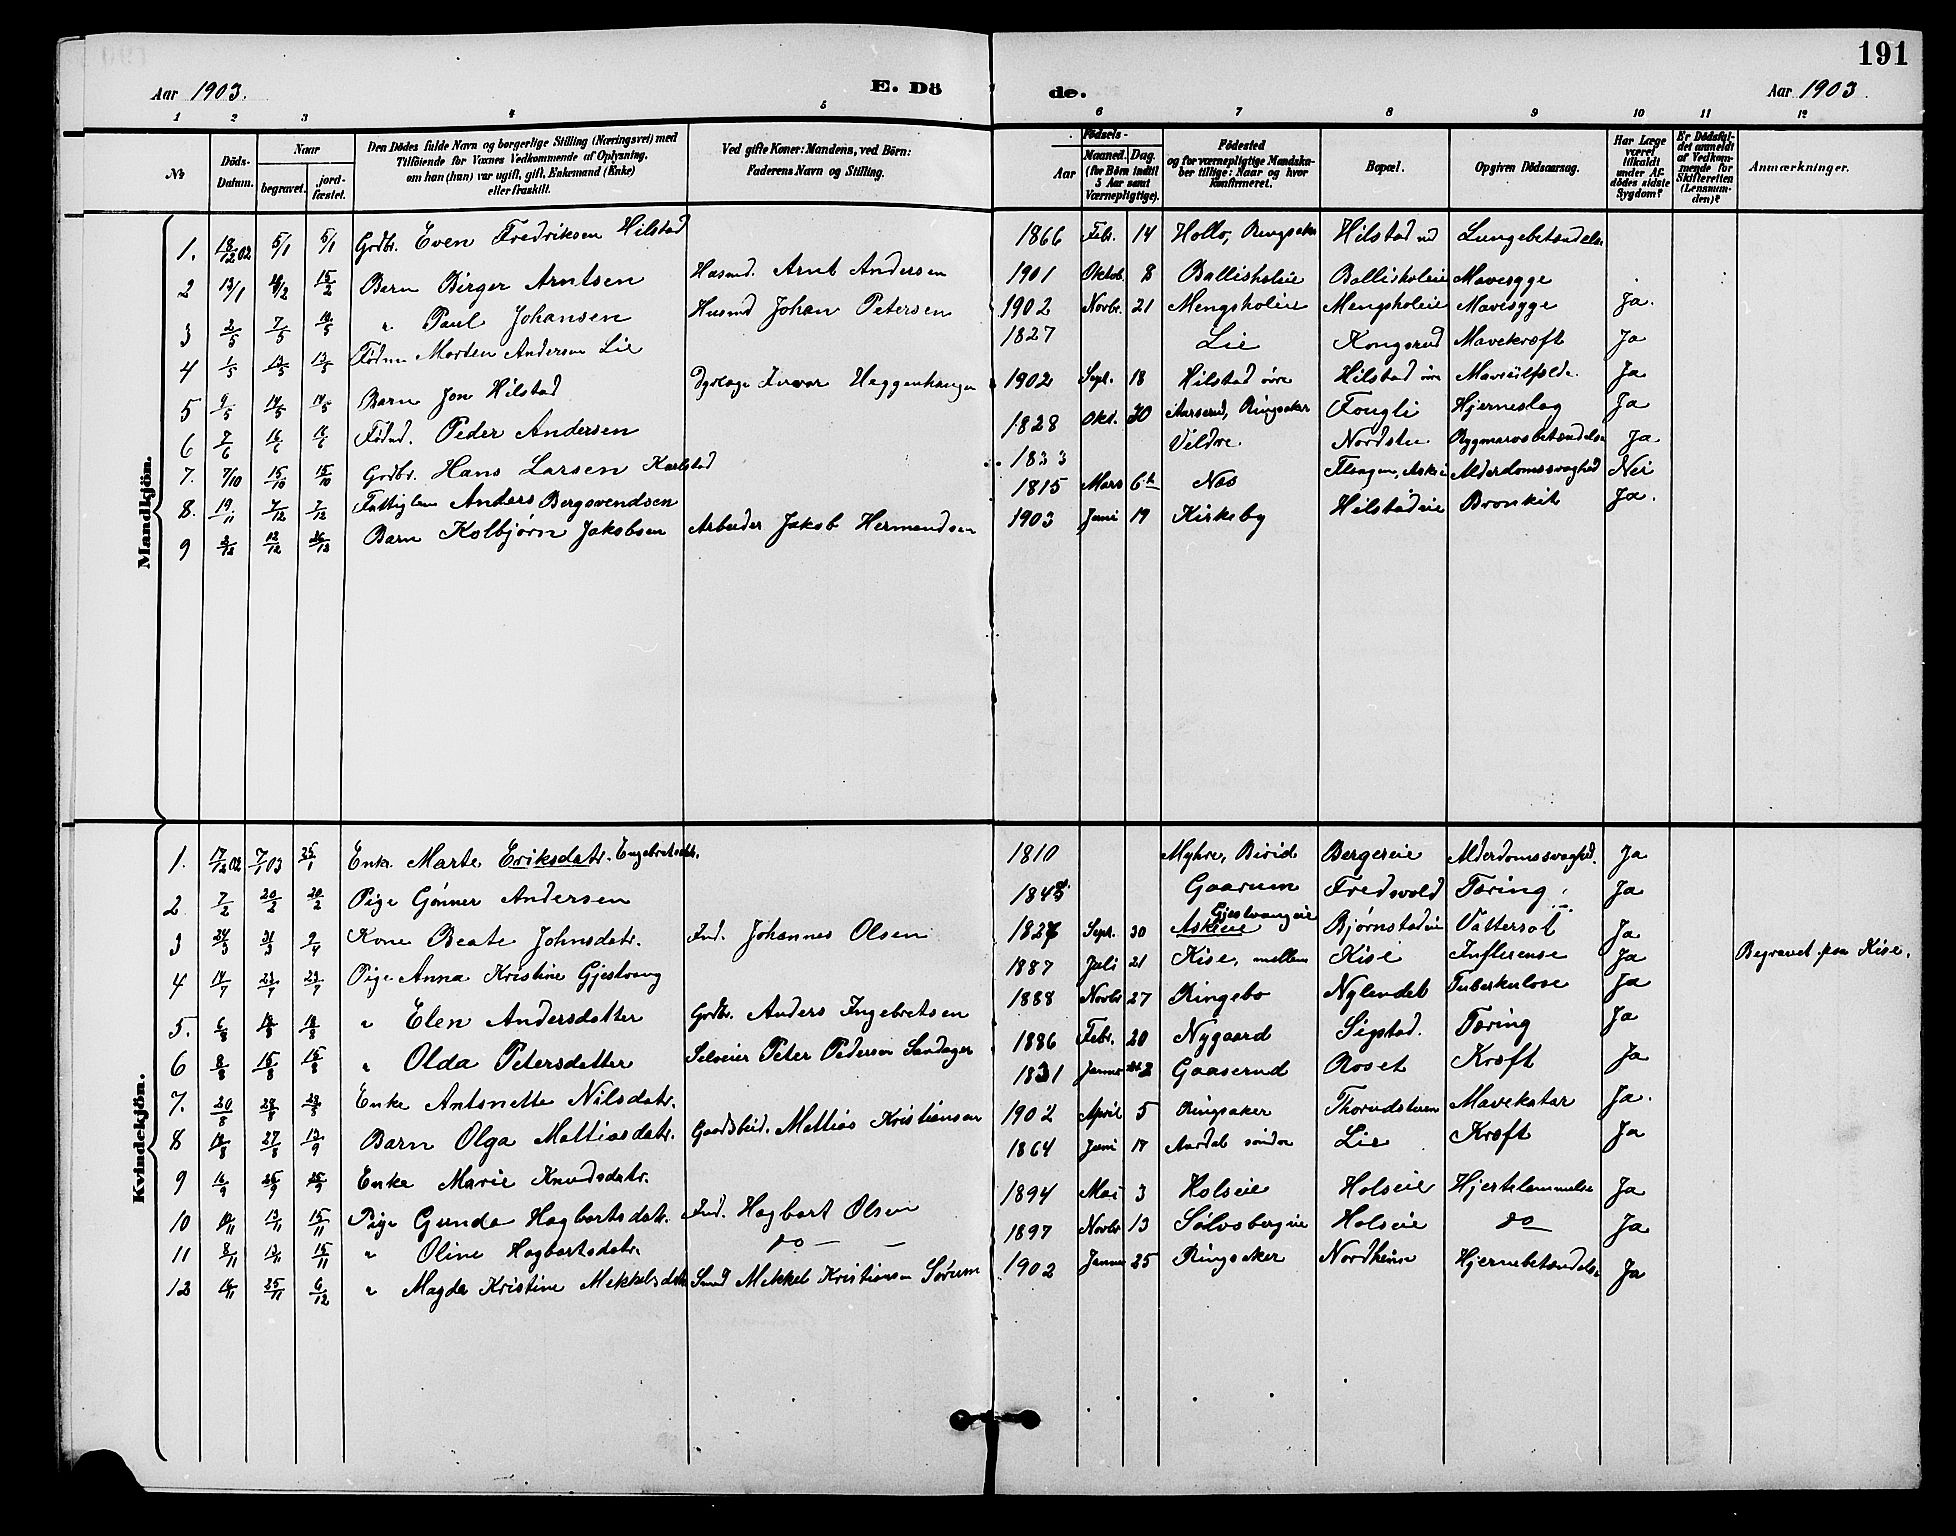 191
Aar 1903. E. Dö de. Aar 1903.
1 2 3 4 5 6 7 8 9 10 11 12
No Döds-Datum. Naar begravet. jord-fæstet. Den Dödes fulde Navn og borgerlige Stilling (Næringsvei) med Tilföiende for Voxnes Vedkommende af Oplysning, om han (hun) var ugift, gift, Enkemand (Enke) eller fraskilt. Ved gifte Koner: Mandens, ved Börn: Faderens Navn og Stilling. Födsels- Aar Maaned. Dag. (for Börn indtil 5 Aar samt Værnepligtige). Födested og for værnepligtige Mandskaber tillige: Naar og hvor konfirmeret. Bopæl. Opgiven Dödsaarsag. Har Læge været tilkaldt under Afdödes sidste Sygdom? Er Dödsfaldet anmeldt af Vedkommende for Skifteretten (Lensmanden)? Anmærkninger.
Mandkjön.
1. 18/12 02 5/1 5/1 Grdbr. Even Fredriksen Hilstad 1866 Febr. 14 Hollo, Ringsaker Hilstad nd Lungebetændelse
2 13/1 15/2 Barn Birger Arntsen Husmd. Arnt Andersen 1901 Oktob. 8 Ballisholeie Ballisholeie Mavesyge
3 2/5 7/5 10/5 " Paul Johansen Husmd Johan Petersen 1902 Novbr. 21 Mengsholeie Mengsholeie Mavesyge Ja.
4 1/5 13/5 13/5 Morten Andersen Lie 1827 Lie Kongsrud Mavekræft Ja
5 9/5 14/5 14/5 Barn Jon Hilstad Dyrlæge Heggenhaugen 1902 Sept. 18 Hilstad övre Hilstad övre Ja
6 7/6 16/6 16/6 Peder Andersen 1828 Okt. 30 Ringsaker Fougli Hjerneslag Ja
7. 7/10 15/10 15/10 Grdbr. Hans Larsen Karlstad 1833 Veldre. Nordstu Rygmarvsbetændelse Ja
8. 19/11 7/12 7/12 Fattiglem Anders Bergsvendsen 1815 Mars 6te Næs Alderdomssvaghed Nei
9 2/12 12/12 26/12 Barn Kolbjørn Jakobsen Arbeider Jakob Hermandsen 1903 Juni 19 Kirkeby Hilstadeie Bronkit Ja.
Kvindekjön.
1. 17/12 02 7/1 03 25/1 Enke Marte Eriksdatr. Engebretsdtr. 1810 Myhre, Birid Bergereie Alderdomssvaghed. Ja
2 7/2 20/2 20/2 Pige Gönner Andersen 1845 Gaarum Fredsvold Tæring Ja
3 24/3 31/3 9/4 Kone Beate Johnsdatr. Ind. Johannes Olsen 1827 Sept. 30 Askeie Gjestvangeie Bjørnstadeie Vattersot Ja
4 17/7 23/7 23/7 Pige Anna Kristine Gjestvang 1887 Juli 21 Kise, mellem Kise Influense Ja Begravet paa Kise.
5. 6/8 12/8 12/8 " Elen Andersdatter Grdbr. Anders Ingebretsen 1888 Novbr 27 Ringebo Nylendet Tuberkulose Ja
6 8/8 15/8 15/8 " Olda Petersdatter Selveier Peter Pedersen Sandager 1886 Febr. 20 Nygaard Sigstad. Tæring Ja
7. 20/8 28/8 Enke Antonette Nilsdatr. 1831 Gaaserud Roset Kræft Ja
8 18/8 27/8 13/9 Barn Olga Mattiasdatr. Mattias Kristiansen 1902 April 5 Ringsaker Thorudstuen Mavekatar Ja.
9 16/9 25/9 25/9 Enke Marie Knudsdatr. 1864 Juni 17 Aardal söndre Lie Kræft Ja
10 13/11 15/11 Pige Gunda Hagbartsdatr. Ind. Hagbart Olsen 1894 Mai 3 Holseie Holseie Hjertelammelse Ja
11 8/11 13/11 15/11 " Oline Hagbartsdatr. do — — 1897 Novbr 13 Sølvsbergeie Holseie do — Ja
12 16/11 25/11 6/12 " Magda Kristine Mekkelsdatr Smed Mekkel Kristiansen Sörum 1902 Januar 25 Ringsaker Nordheim Hjernebetændelse Ja